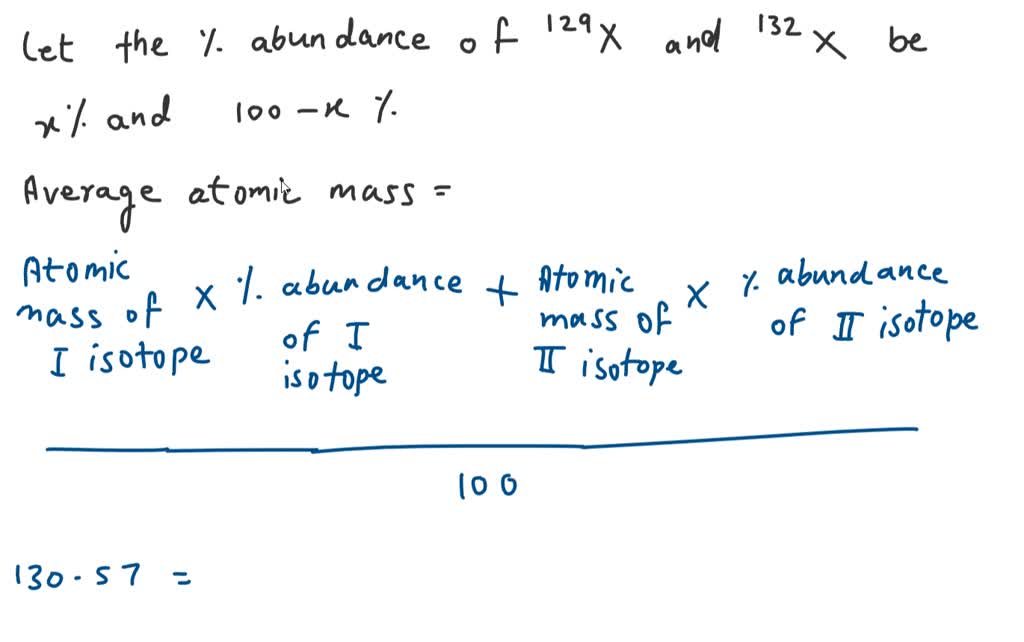 Let the % abundance of ¹²⁹X and ¹³²X be
x% and 100 - x %.
Average atomic mass =
Atomic mass of I isotope × % abundance of I isotope + Atomic mass of II isotope × % abundance of II isotope
100
130.57 =